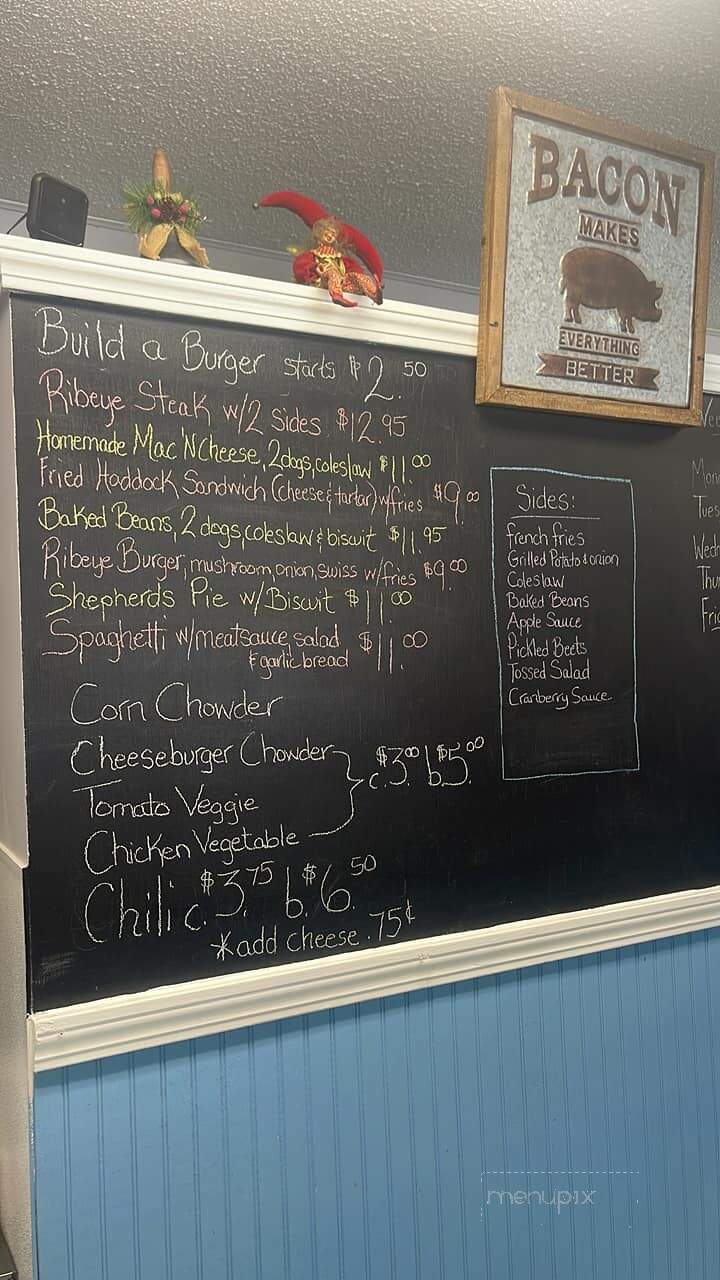 BACON
MAKES
EVERYTHING
BETTER
Build a Burger starts $2.50
Ribeye Steak w/2 Sides $12.95
Homemade Mac N Cheese, 2dogs, coleslaw $11.00
Fried Haddock Sandwich (cheese & tartar) w/fries $9.00
Baked Beans, 2 dogs, coleslaw & biscuit $11.95
Ribeye Burger, mushroom, onion, swiss w/fries $9.00
Shepherds Pie w/Biscuit $11.00
Spaghetti w/meatsauce, salad $11.00
& garlic bread
Corn Chowder
Cheeseburger Chowder
c.$3.00 b.$5.00
Tomato Veggie
Chicken Vegetable
Chili c.$3.75 b.$6.50
*add cheese .75¢
Sides:
french fries
Grilled Potato & onion
Coleslaw
Baked Beans
Apple Sauce
Pickled Beets
Tossed Salad
Cranberry Sauce
menupix